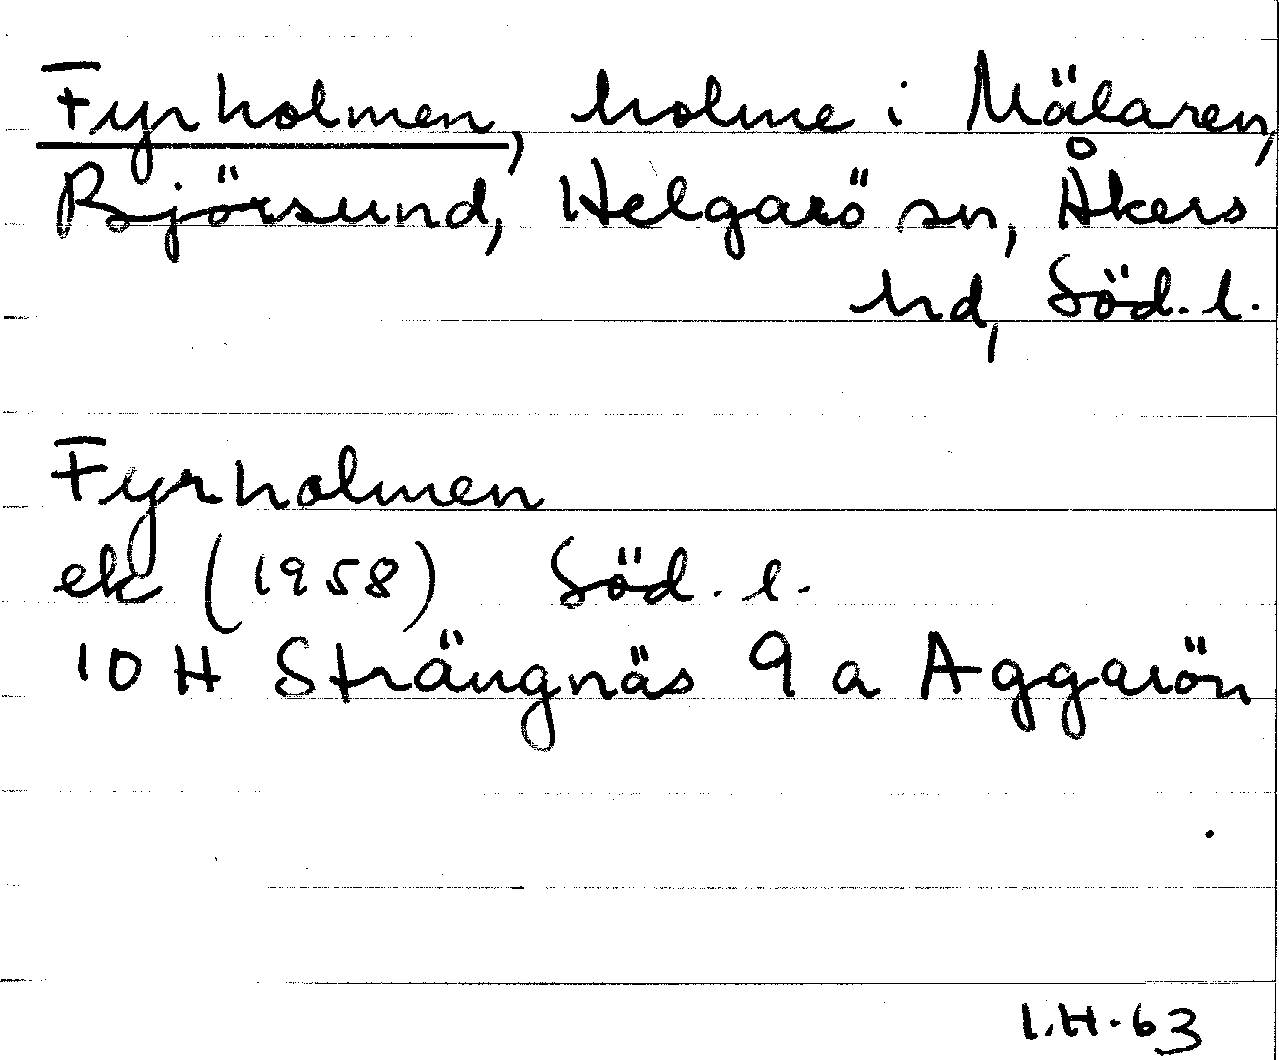 Fyrholmen, holme i Mälaren,
Björsund, Helgarö sn, Åkers
hd, Söd. l.
Fyrholmen
ek (1958) Söd. l.
10 H Strängnäs 9 a Aggarön
I.H. 63